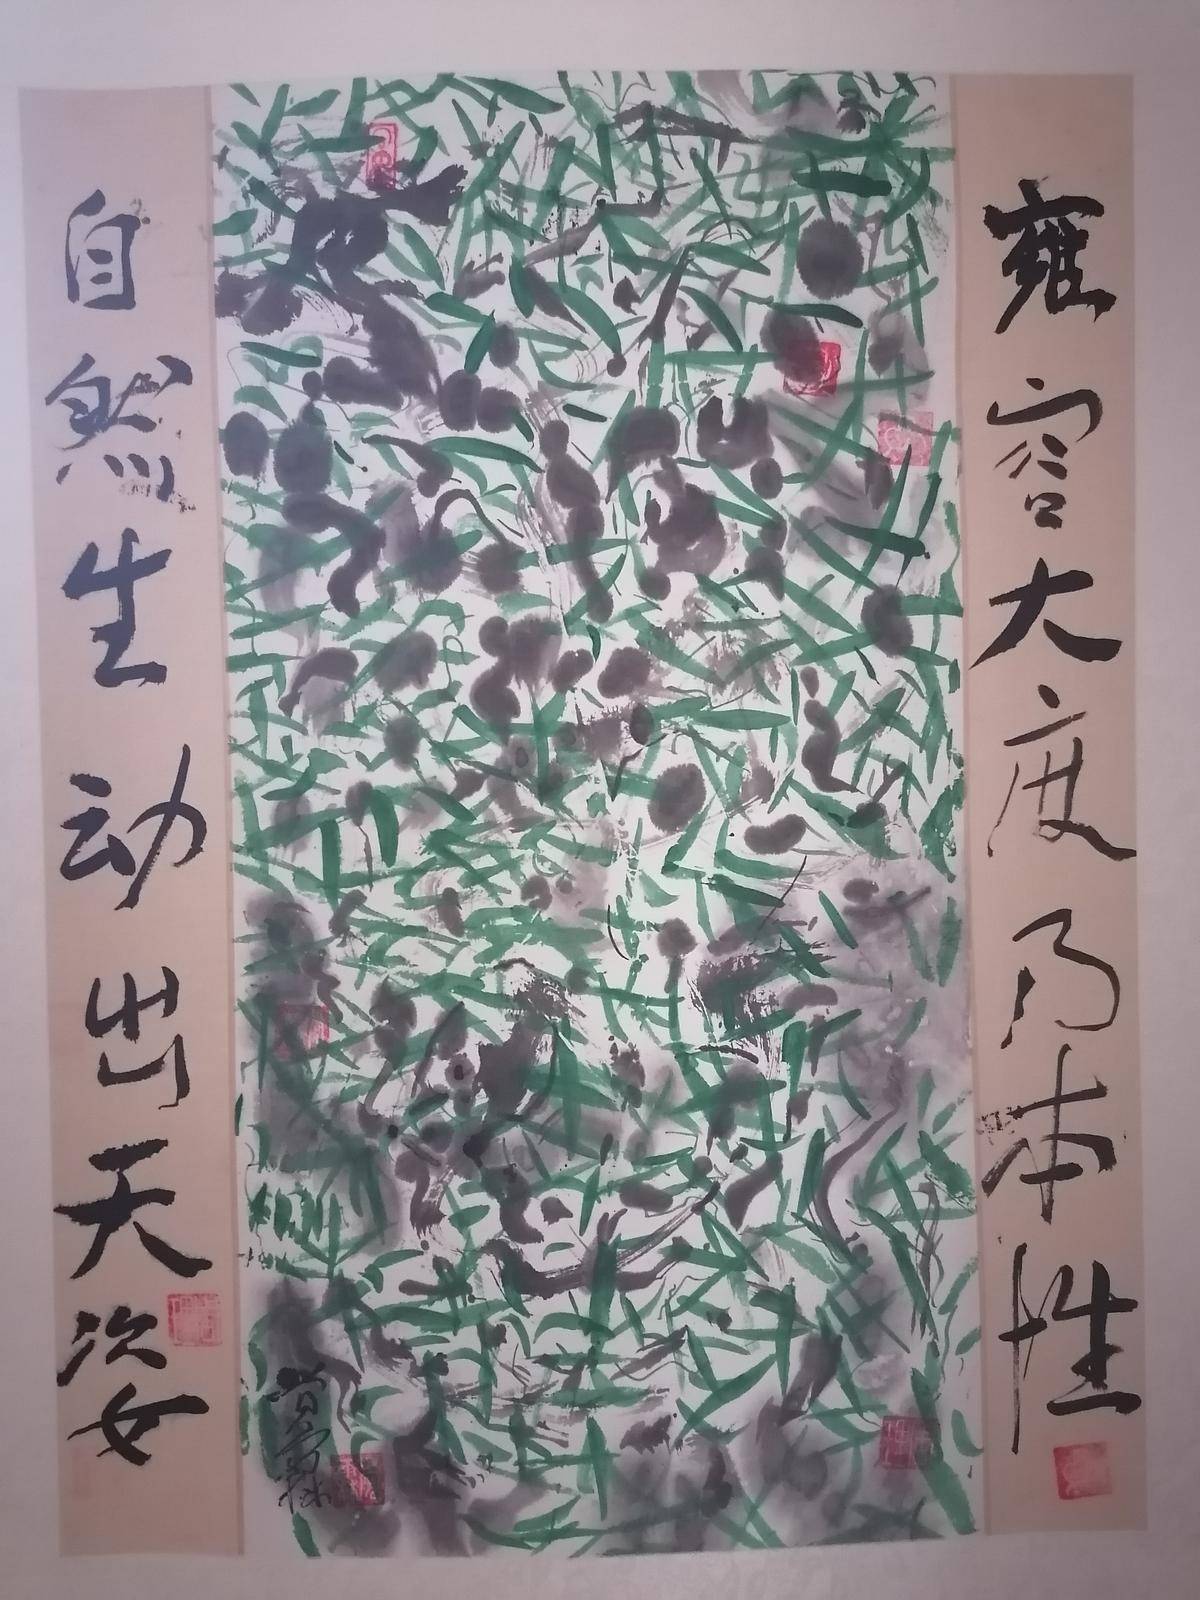 雍容大度乃本性
自然生动出天姿